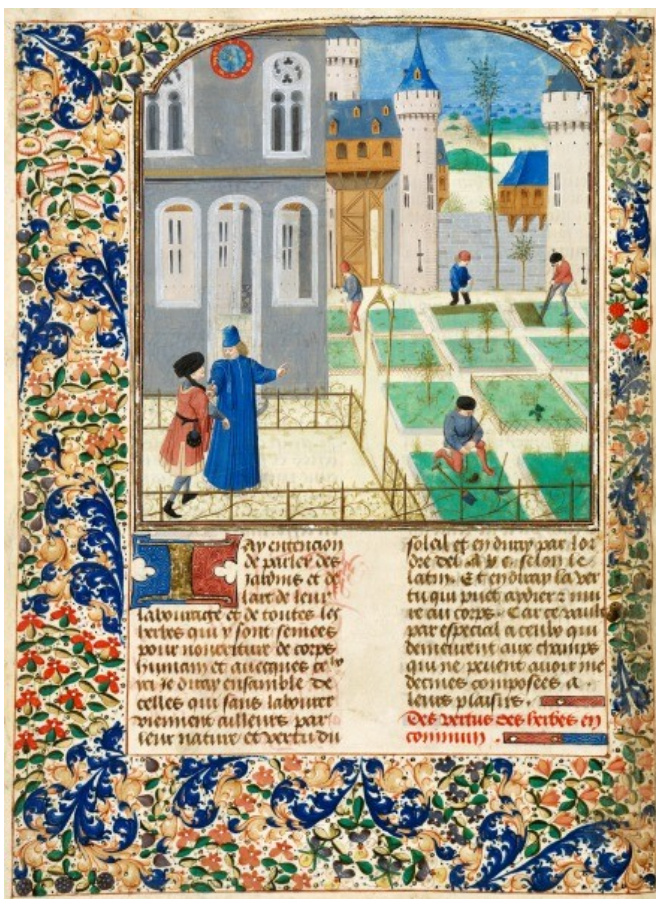 ay entencion
de parler des
jardins et de
lart de leur
labourage et de toutes les
herbes qui y sont semees
pour nourriture de corps
humain et avecques ce
je diray ensamble de
celles qui sans labourer
viennent ailleurs par
leur nature et vertu du
soleil et en diray par lor
dre del a b c selon le
latin Et en diray la ver
tu qui puet aydier z nui
re au corps Car ce vault
par especial a ceulx qui
demeurent aux champs
qui ne peuent avoir me
decines composees a
leurs plaisirs
Des vertus des herbes en
commun